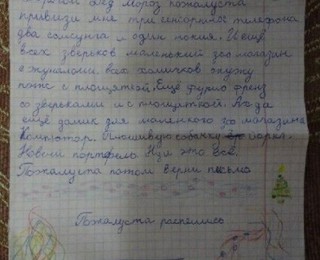 дед мороз пожалуста
привизи мне три сенсорных телефона
два самсунга и один нокия. И ещё
всех зверьков маленький зоо магазин
с жуналами, всех хомячков
тоже с площяткой. Ещё фурио френз
со зверьками и с площяткой. Ах да
ещё домик для маленького зоо магазина
Компютор. собачку
Новый портфель Ну и это всё.
Пожалуста потом верни письмо
Пожалуста роспешись